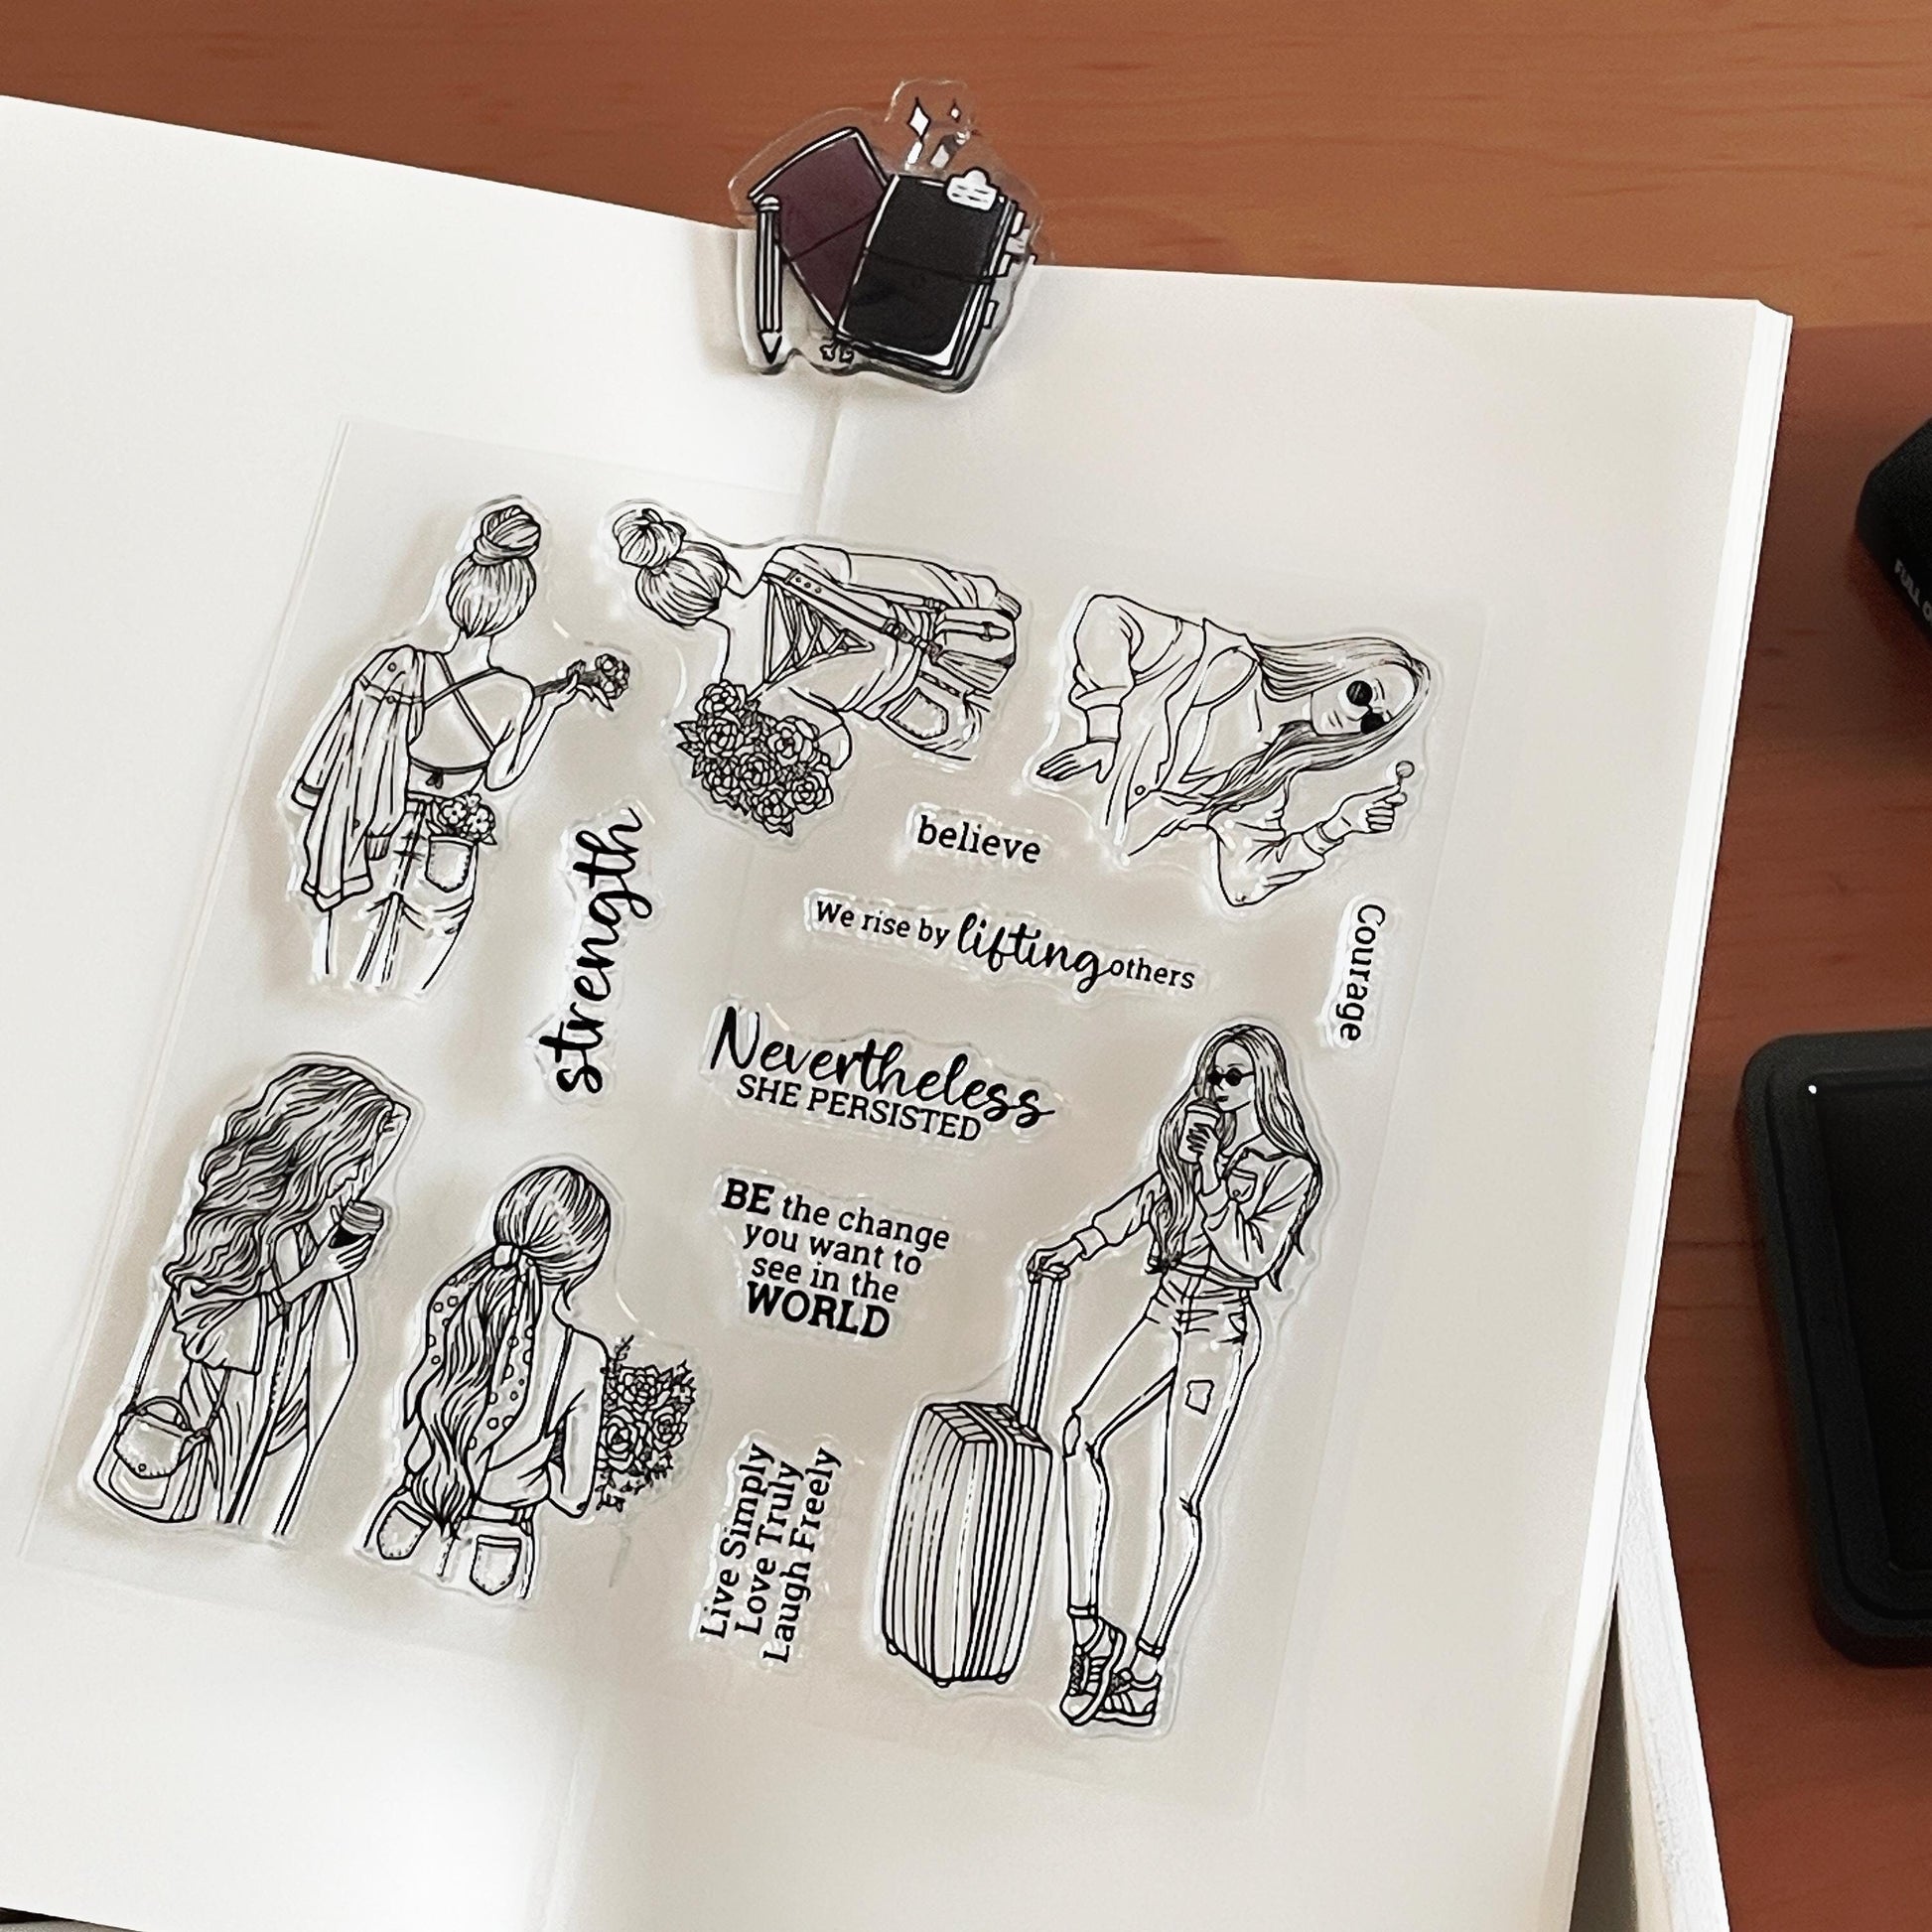 believe
strength
We rise by lifting others
Courage
Nevertheless
SHE PERSISTED
BE the change
you want to
see in the
WORLD
Live Simply
Love Truly
Laugh Freely